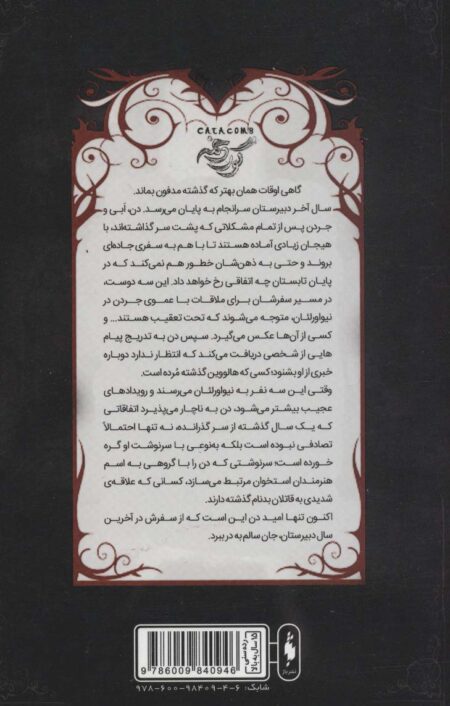 CATACOMB
گاهی اوقات همان بهتر که گذشته مدفون بماند.
سال آخر دبیرستان سرانجام به پایان می‌رسد. دن، آبی و
جردن پس از تمام مشکلاتی که پشت سر گذاشته‌اند، با
هیجان زیادی آماده هستند تا با هم به سفری جاده‌ای
بروند و حتی به ذهن‌شان خطور هم نمی‌کند که در
پایان تابستان چه اتفاقی رخ خواهد داد. این سه دوست،
در مسیر سفرشان برای ملاقات با عموی جردن در
نیواورلئان، متوجه می‌شوند که تحت تعقیب هستند... و
کسی از آن‌ها عکس می‌گیرد. سپس دن به تدریج پیام
هایی از شخصی دریافت می‌کند که انتظار ندارد دوباره
خبری از او بشنود؛ کسی که هالووین گذشته مُرده است.
وقتی این سه نفر به نیواورلئان می‌رسند و رویدادهای
عجیب بیشتر می‌شود، دن به ناچار می‌پذیرد اتفاقاتی
که یک سال گذشته از سر گذرانده، نه تنها احتمالاً
تصادفی نبوده است بلکه به‌نوعی با سرنوشت او گره
خورده است؛ سرنوشتی که دن را با گروهی به اسم
هنرمندان استخوان مرتبط می‌سازد، کسانی که علاقه‌ی
شدیدی به قاتلان بدنام گذشته دارند.
اکنون تنها امید دن این است که از سفرش در آخرین
سال دبیرستان، جان سالم به در ببرد.
رده سنی
۱۵ سال به بالا
9 786009 840946
شابک: ۹۷۸-۶۰۰-۹۸۴۰۹-۴-۶